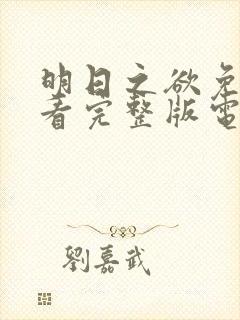 明日之欲免
看完整版電
劉嘉武